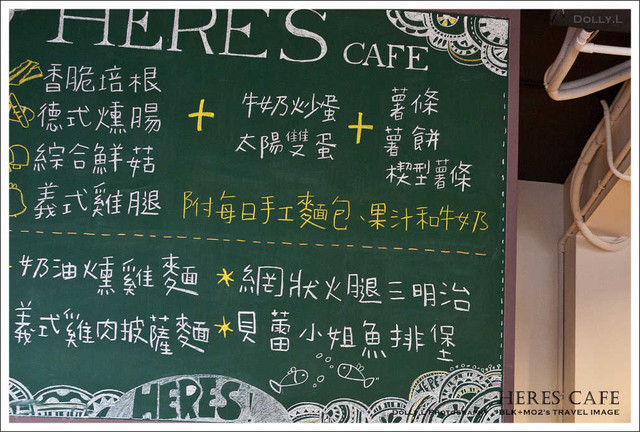 DOLLY.L
HERES CAFE
香脆培根
德式燻腸
綜合鮮菇
義式雞腿
+
牛奶炒蛋
太陽雙蛋
+
薯條
薯餅
楔型薯條
附每日手工麵包、果汁和牛奶
奶油燻雞麵 *網狀火腿三明治
義式雞肉披薩麵 *貝蕾小姐魚排堡
HERES
HERES CAFE
DOLLY.L PHOTOGRAPHY BLK+MO2'S TRAVEL IMAGE